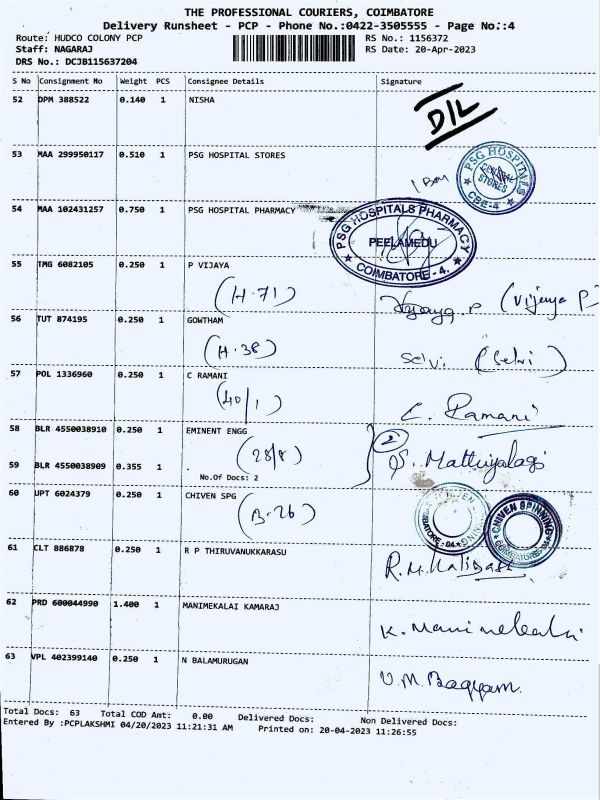 THE PROFESSIONAL COURIERS, COIMBATORE
Delivery Runsheet - PCP - Phone No.:0422-3505555 - Page No.:4
Route: HUDCO COLONY PCP
Staff: NAGARAJ
DRS No.: DCJB115637204
RS No.: 1156372
RS Date: 20-Apr-2023
S No Consignment No Weight PCS Consignee Details Signature
52 DPM 388522 0.140 1 NISHA D/L
53 MAA 299950117 0.510 1 PSG HOSPITAL STORES
PSG HOSPITALS CENTRAL STORES CBE-4
54 MAA 102431257 0.750 1 PSG HOSPITAL PHARMACY
PSG HOSPITALS PHARMACY
PEELAMEDU
COIMBATORE - 4.
55 TMG 6082105 0.250 1 P VIJAYA
(H.71) Vijaya P (Vijaya P)
56 TUT 874195 0.250 1 GOWTHAM
(H.38) Selvi (Selvi)
57 POL 1336960 0.250 1 C RAMANI
(40/1) C. Ramani
58 BLR 4550038910 0.250 1 EMINENT ENGG
(28/8) 2
59 BLR 4550038909 0.355 1 .
No.Of Docs: 2
S. Mathiyalagi
60 UPT 6024379 0.250 1 CHIVEN SPG
(B-26)
CHIVEN SPINNING COIMBATORE - 04
CHIVEN SPINNING COIMBATORE
61 CLT 886878 0.250 1 R P THIRUVANUKKARASU
R.M. Kalidass
62 PRD 600044990 1.400 1 MANIMEKALAI KAMARAJ
K. Manimekalai
63 VPL 402399140 0.250 1 N BALAMURUGAN
V.M. Bagyam.
Total Docs: 63 Total COD Amt: 0.00 Delivered Docs: Non Delivered Docs:
Entered By :PCPLAKSHMI 04/20/2023 11:21:31 AM Printed on: 20-04-2023 11:26:55